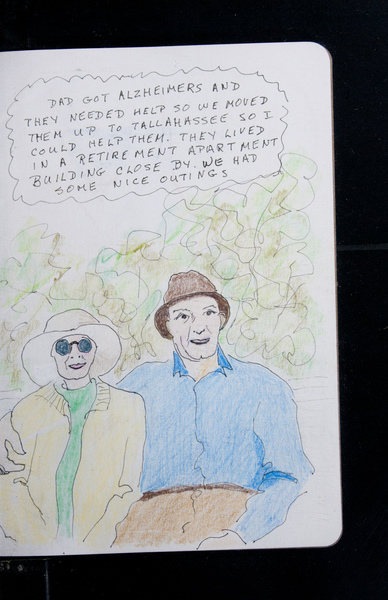 DAD GOT ALZHEIMERS AND
THEY NEEDED HELP SO WE MOVED
THEM UP TO TALLAHASSEE SO I
COULD HELP THEM. THEY LIVED
IN A RETIREMENT APARTMENT
BUILDING CLOSE BY. WE HAD
SOME NICE OUTINGS